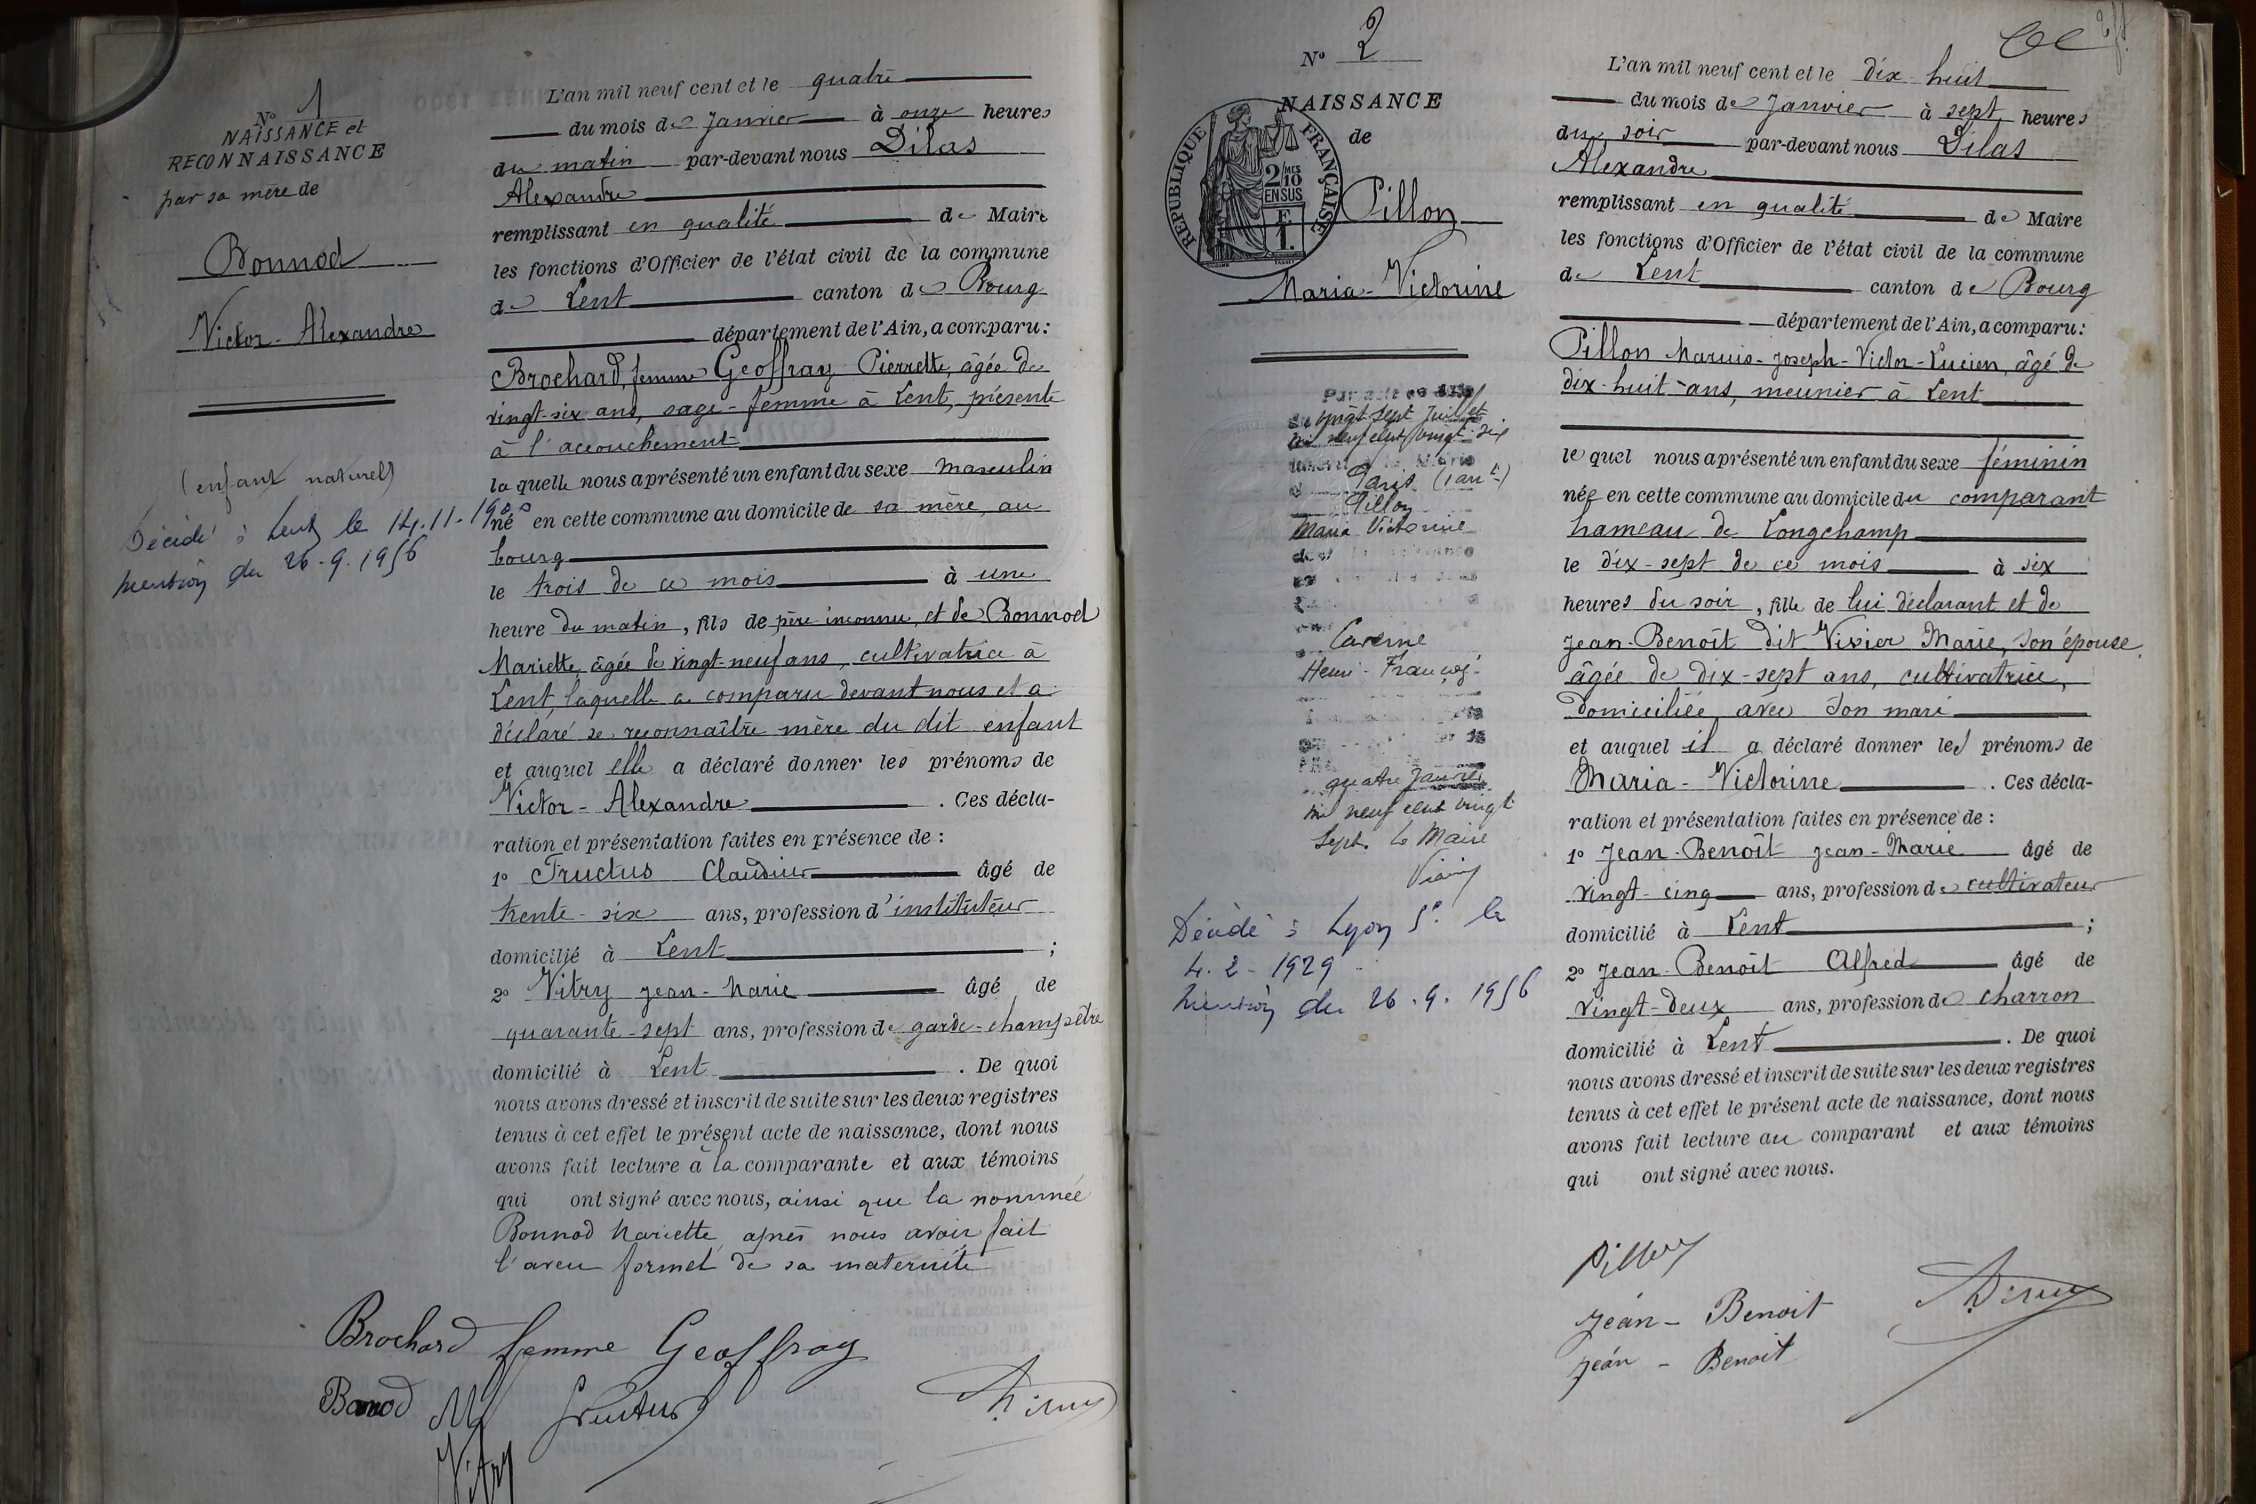 N° 1
NAISSANCE et
RECONNAISSANCE
par sa mère de
Bonnod
Victor - Alexandre
(enfant naturel)
Décédé à Lent le 14.11.1900
mention du 26.9.1956
L'an mil neuf cent et le quatre
du mois de Janvier à onze heures
du matin par-devant nous Dilas
Alexandre
remplissant en qualité de Maire
les fonctions d'Officier de l'état civil de la commune
de Lent canton de Bourg
département de l'Ain, a comparu:
Brochard, femme Geoffray Pierrette, âgée de
vingt-six ans, sage-femme à Lent, présente
à l'accouchement
laquelle nous a présenté un enfant du sexe masculin
né en cette commune au domicile de sa mère, au
bourg
le trois de ce mois à une
heure du matin, fils de père inconnu, et de Bonnod
Mariette, âgée de vingt-neuf ans, cultivatrice à
Lent, laquelle a comparu devant nous et a
déclaré se reconnaître mère du dit enfant
et auquel elle a déclaré donner les prénoms de
Victor - Alexandre. Ces décla-
ration et présentation faites en présence de :
1° Fructus Claudius âgé de
trente-six ans, profession d'instituteur
domicilié à Lent ;
2° Vitry Jean-Marie âgé de
quarante-sept ans, profession de garde-champêtre
domicilié à Lent. De quoi
nous avons dressé et inscrit de suite sur les deux registres
tenus à cet effet le présent acte de naissance, dont nous
avons fait lecture à la comparante et aux témoins
qui ont signé avec nous, ainsi que la nommée
Bonnod Mariette, après nous avoir fait
l'aveu formel de sa maternité
Brochard femme Geoffray
Bonnod M Fructus
Vitry
N° 2
NAISSANCE
de
RÉPUBLIQUE FRANÇAISE
2/10 MES
EN SUS
Pillon
Maria - Victorine
vingt sept Juillet
mil neuf cent vingt-six
Paris
Pillon
Maria Victorine
Caverne
Henri - François
quatre Janvier
mil neuf cent vingt
sept. Le Maire
Décédé à Lyon 5e le
4.2-1929
mention du 26.9.1956
L'an mil neuf cent et le dix-huit
du mois de Janvier à sept heures
du soir par-devant nous Dilas
Alexandre
remplissant en qualité de Maire
les fonctions d'Officier de l'état civil de la commune
de Lent canton de Bourg
département de l'Ain, a comparu:
Pillon Marius-Joseph-Victor-Lucien, âgé de
dix-huit ans, meunier à Lent
lequel nous a présenté un enfant du sexe féminin
née en cette commune au domicile du comparant
hameau de Longchamp
le dix-sept de ce mois à six
heures du soir, fille de lui déclarant et de
Jean-Benoît dit Vivier Marie, son épouse
âgée de dix-sept ans, cultivatrice,
domiciliée avec son mari
et auquel il a déclaré donner les prénoms de
Maria - Victorine. Ces décla-
ration et présentation faites en présence de :
1° Jean-Benoît Jean-Marie âgé de
vingt-cinq ans, profession de cultivateur
domicilié à Lent ;
2° Jean-Benoît Alfred âgé de
vingt-deux ans, profession de charron
domicilié à Lent. De quoi
nous avons dressé et inscrit de suite sur les deux registres
tenus à cet effet le présent acte de naissance, dont nous
avons fait lecture au comparant et aux témoins
qui ont signé avec nous.
Pillon
Jean - Benoit
Jean - Benoit